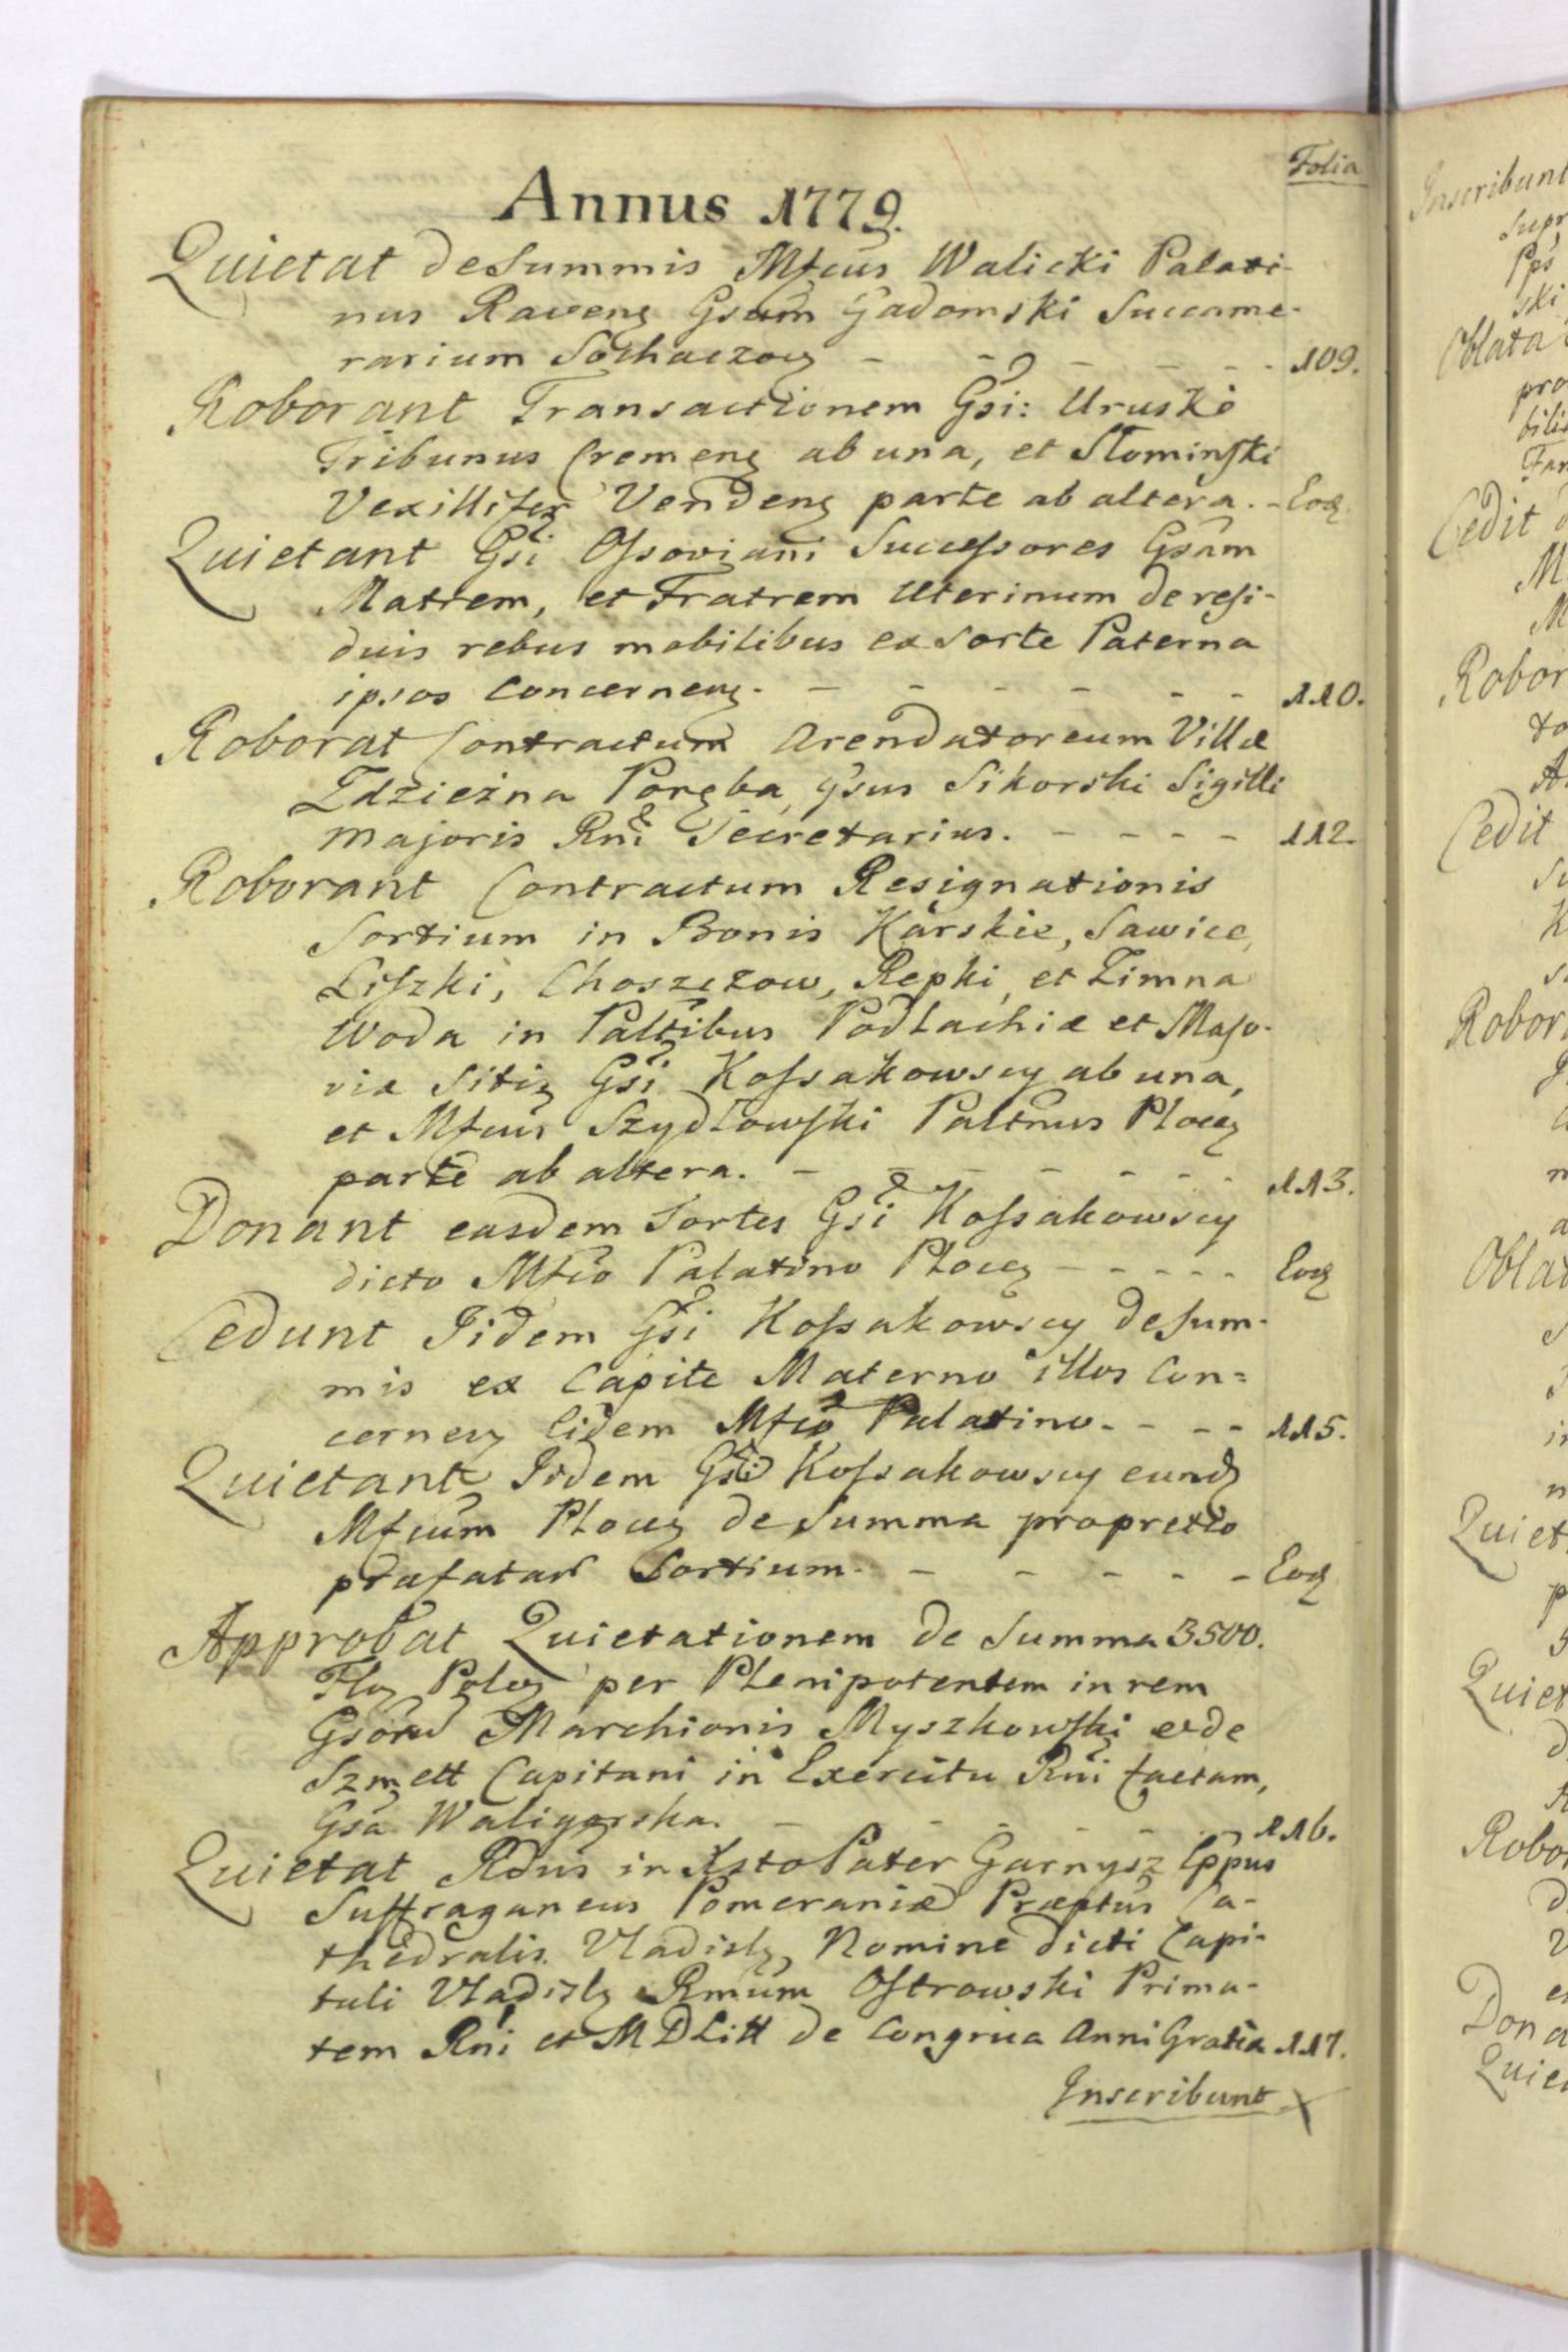 Folia
Annus 1779.
Quietat de Summis Mfcus Walicki Palati-
nus Ravens Gsum Gadomski Succame-
rarium Sochaczow - - - - - 109.
Roborant Transactionem Gsi: Uruski
Tribunus Cremens ab una, et Słominski
Vexillifer Vendens parte ab altera. - Eod
Quietant Gsi Ossoviani Successores Gsam
Matrem, et Fratrem Uterinum de resi-
duis rebus mobilibus ex Sorte Paterna
ipsos Concernens. - - - - - - 110.
Roborat Contractum Arendatoreum Villæ
Zdzieżna Poręba, Gsus Sikorski Sigilli
Majoris Rni Secretarius. - - - - 112.
Roborant Contractum Resignationis
Sortium in Bonis Karskie, Sawice,
Liszki, Choszczow, Repki, et Zimna
Woda in Paltibus Podlachiæ et Maso-
viæ Sitis Gsi Kossakowscy ab una,
et Mfcus Szydłowski Paltnus Płocs
parte ab altera. - - - - - - 113.
Donant easdem Sortes Gsi Kossakowscy
dicto Mfco Palatino Płocs - - - - - Eod
Cedunt Iidem Gsi Kossakowscy de Sum-
mis ex Capite Materno illos Con=
cernens Eidem Mfco Palatino. - - - 115.
Quietant Iidem Gsi Kossakowscy eund
Mfcum Płocs de Summa pro pretio
præfatar Sortium. - - - - - - Eod
Approbat Quietationem de Summa 3500.
Flos Polos per Plenipotentem in rem
Gsor Marchionis Myszkowski et de
Szmett Capitani in Exercitu Rni factam,
Gsa Waligorska. - - - - - - 116.
Quietat Rdus in Xsto Pater Garnysz Eppus
Suffraganeus Pomeraniæ Præptus Ca-
thedralis Vladisls, Nomine dicti Capi-
tuli Vladisls Rmum Ostrowski Prima-
tem Rni et MDLitt de Congrua Anni Gratiæ 117.
Inscribunt
Inscribunt
Supr
Pps
ski
Oblata
pro
bili
Fam
Cedit
M
M
Robor
to
A
Cedit
Su
K
s
Robor
Oblat
Quiet
p
Quiet
d
Robo
d
V
e
Dona
Quie